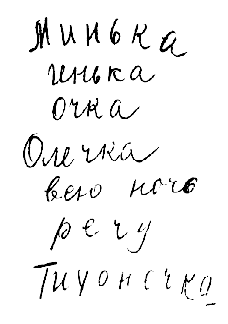 Минька
инька
очка
Олечка
всю ночь
речу
Тихоночка